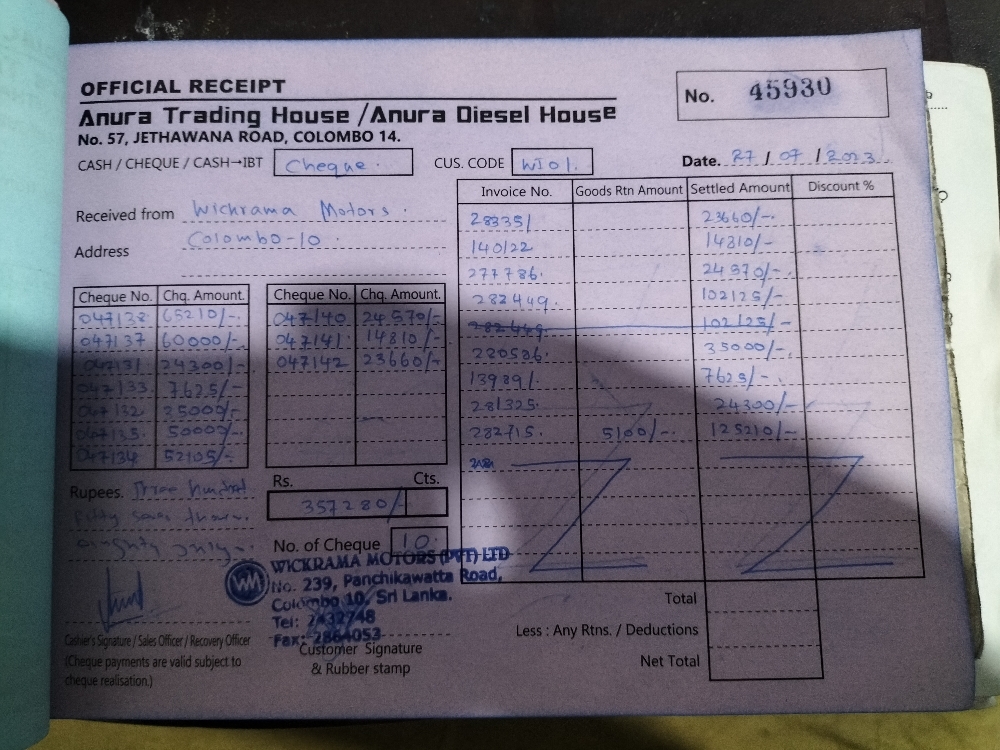 OFFICIAL RECEIPT
No. 45930
Anura Trading House / Anura Diesel House
No. 57, JETHAWANA ROAD, COLOMBO 14.
CASH / CHEQUE / CASH→IBT Cheque. CUS. CODE WI01. Date. 27 / 07 / 2023
Received from Wickrama Motors.
Address Colombo-10.
Invoice No. Goods Rtn Amount Settled Amount Discount %
28335/ 23660/-.
140122 14810/-.
277786. 24570/-.
282449. 102125/-.
282449. 102125/-.
280586. 35000/-.
13989/. 7625/-.
281325. 24300/-
282715. 5100/-. 125210/-.
Cheque No. Chq. Amount.
047138 65210/-.
047137 60000/-.
047131 24300/-
047133 7625/-
047132 35000/-
047135. 50000/-.
047134 52105/-
Cheque No. Chq. Amount.
047140 24570/-
047141 14810/-
047142 23660/-
Rupees. Three hundred
fifty seven
only
Rs. Cts.
357280/-
No. of Cheque 10
WICKRAMA MOTORS (PVT) LTD
WM
No. 239, Panchikawatta Road,
Colombo 10, Sri Lanka.
Tel: 2432748
Fax: 2864053
Cashier's Signature / Sales Officer / Recovery Officer
(Cheque payments are valid subject to
cheque realisation.)
Customer Signature
& Rubber stamp
Total
Less : Any Rtns. / Deductions
Net Total